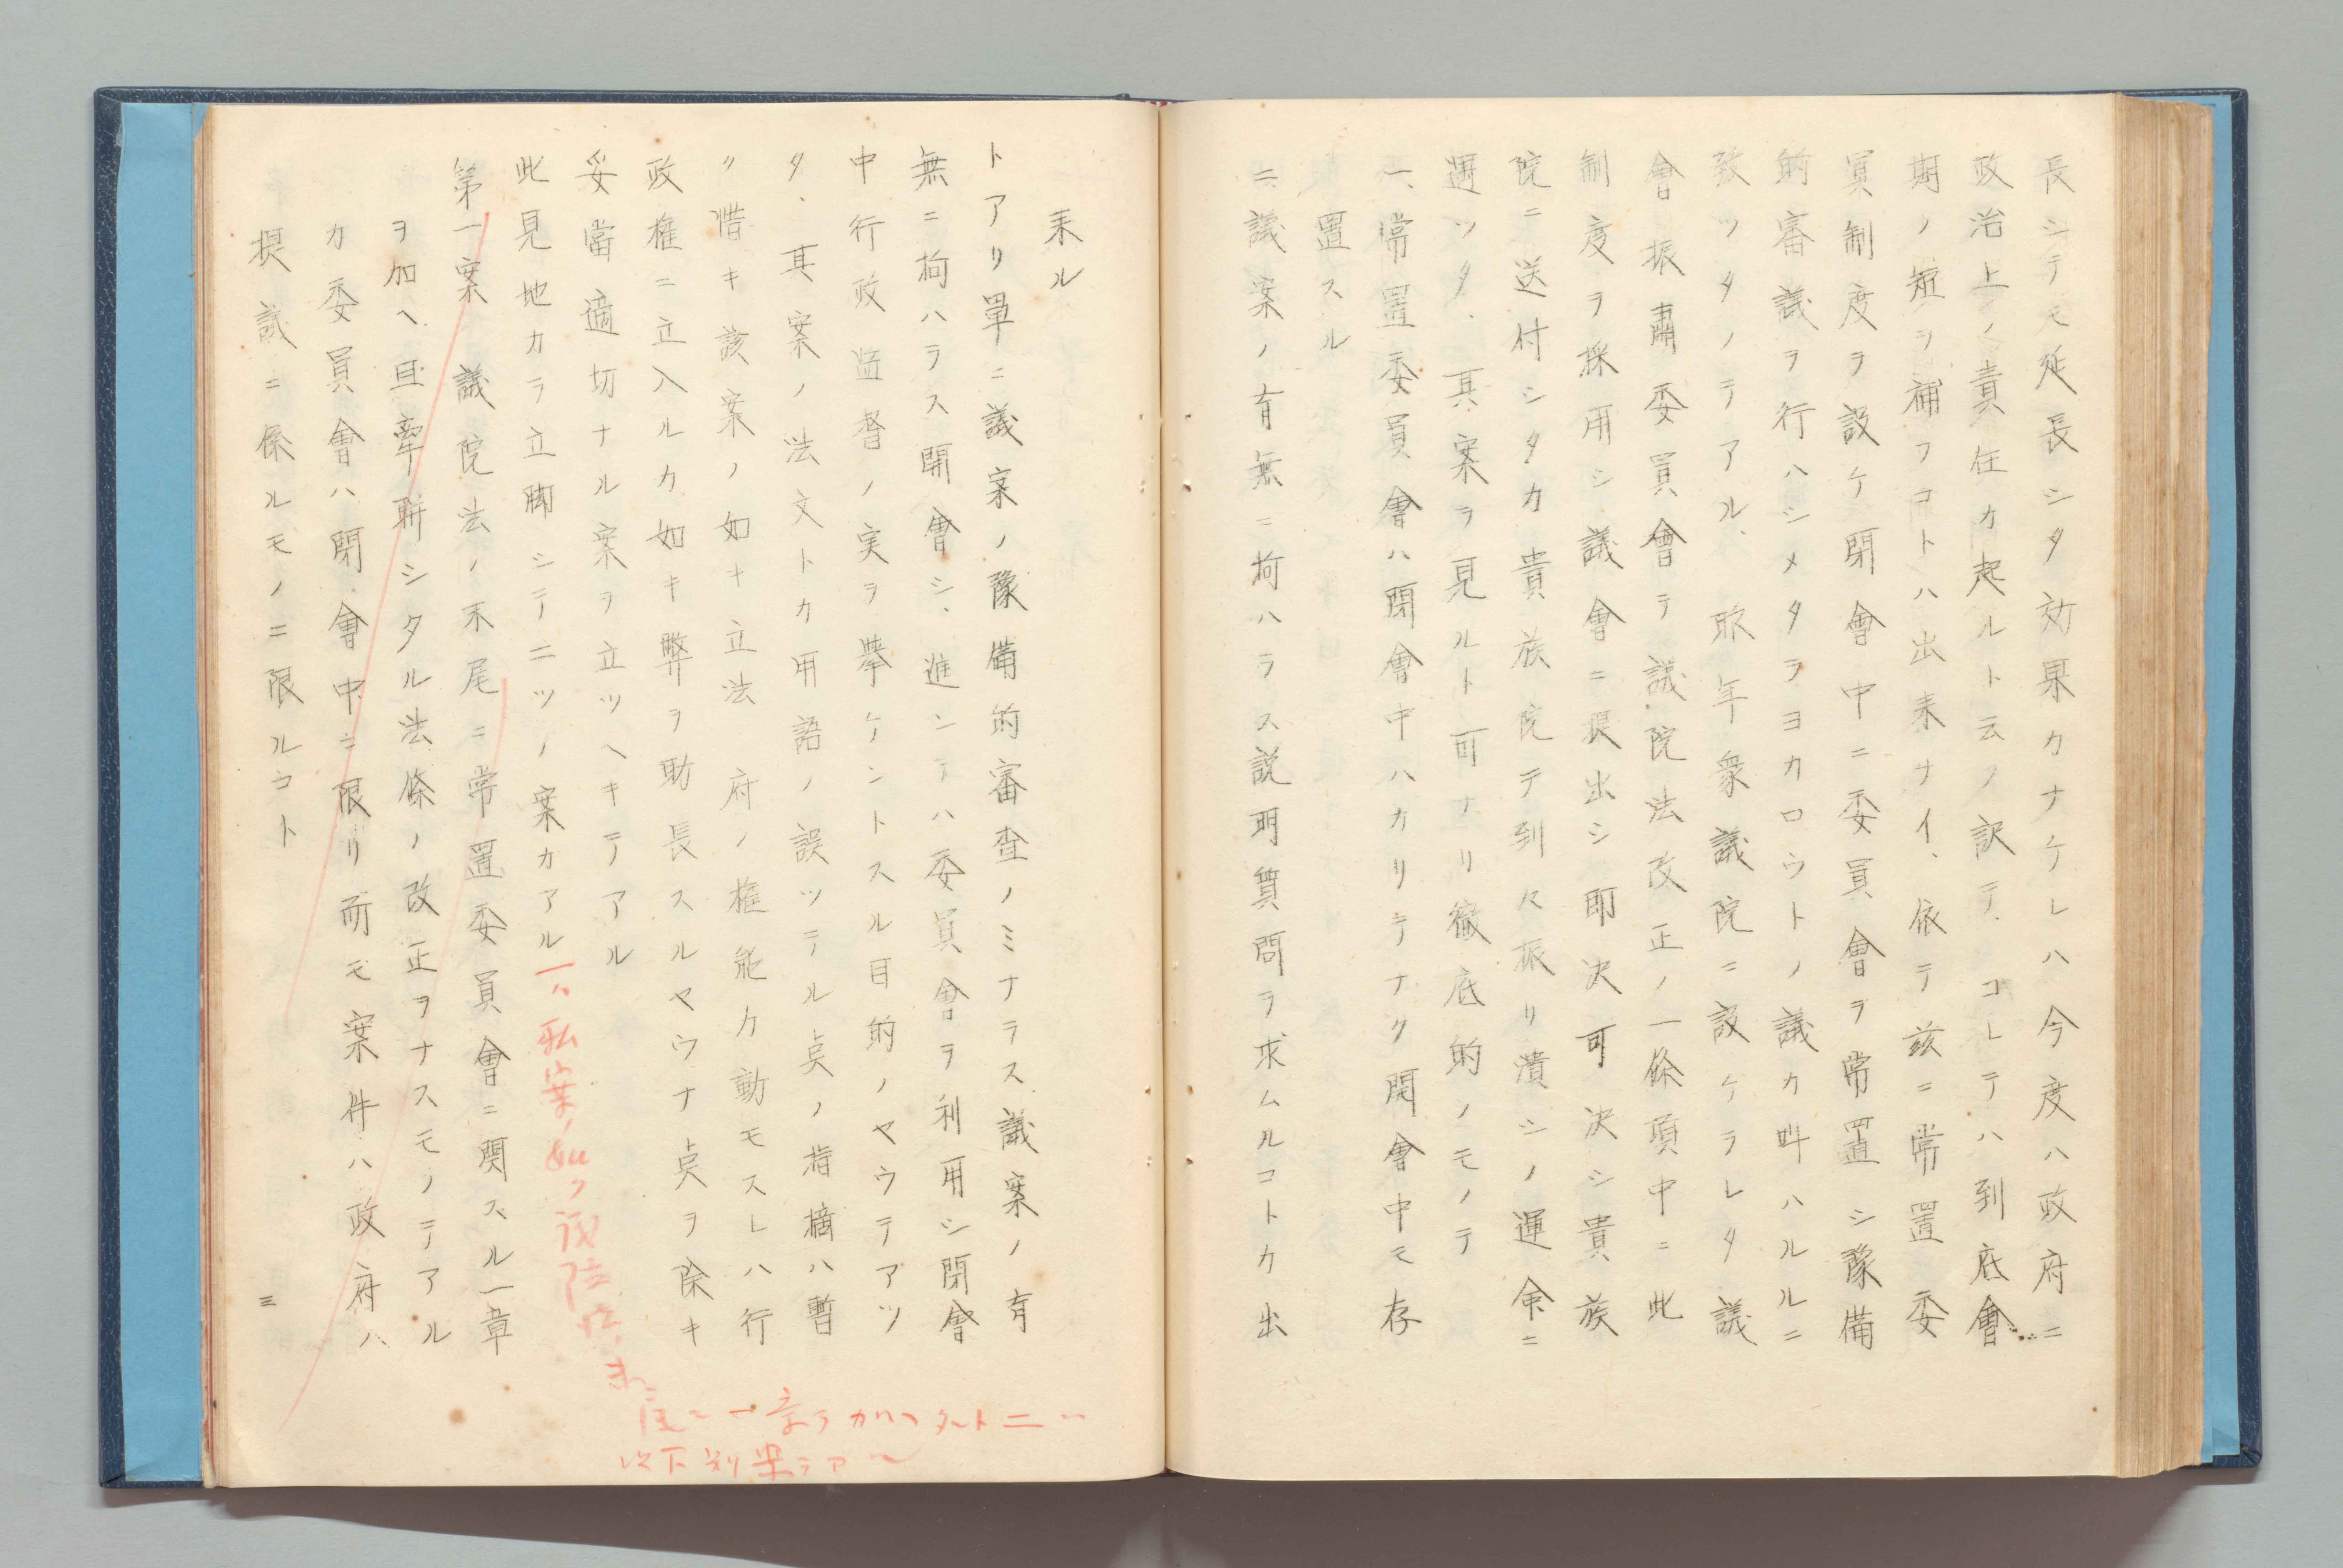 長シテモ延長シタ効果カナケレハ今度ハ政府ニ
政治上ノ責任カ起ルト云フ訳テ、コレテハ到底會
期ノ短ヲ補フコトハ出来ナイ、依テ茲ニ常置委
員制度ヲ設ケ閉會中ニ委員會ヲ常置シ豫備
的審議ヲ行ハシメタラヨカロウトノ議カ叫ハルルニ
致ツタノテアル、昨年衆議院ニ設ケラレタ議
會振肅委員會テ議院法改正ノ一條項中ニ此
制度ヲ採用シ議會ニ提出シ即決可決シ貴族
院ニ送付シタカ貴族院テ到々振リ潰シノ運命ニ
遇ツタ、其案ヲ見ルト可ナリ徹底的ノモノテ
一、常置委員會ハ閉會中ハカリテナク開會中モ存
置スル
二、議案ノ有無ニ拘ハラス説明質問ヲ求ムルコトカ出
来ル
トアリ單ニ議案ノ豫備的審査ノミナラス議案ノ有
無ニ拘ハラス開會シ、進ンテハ委員會ヲ利用シ閉會
中行政監督ノ実ヲ擧ケントスル目的ノヤウテアツ
タ、其案ノ法文トカ用語ノ誤ツテル点ノ指摘ハ暫
ク惜キ該案ノ如キ立法府ノ権能カ動モスレハ行
政権ニ立入ルカ如キ弊ヲ助長スルヤウナ点ヲ除キ
妥當適切ナル案ヲ立ツヘキテアル
此見地カラ立脚シテ二ツノ案カアル一ハ私案ノ如ク議院法ノ末
尾ニ一章ヲ加ヘタルト二ハ
以下別案テアル
第一案 議院法ノ末尾ニ常置委員會ニ関スル一章
ヲ加ヘ、且牽聯シタル法條ノ改正ヲナスモノテアル
カ委員會ハ閉會中ニ限リ而モ案件ハ政府ハ、
提議ニ係ルモノニ限ルコト
三